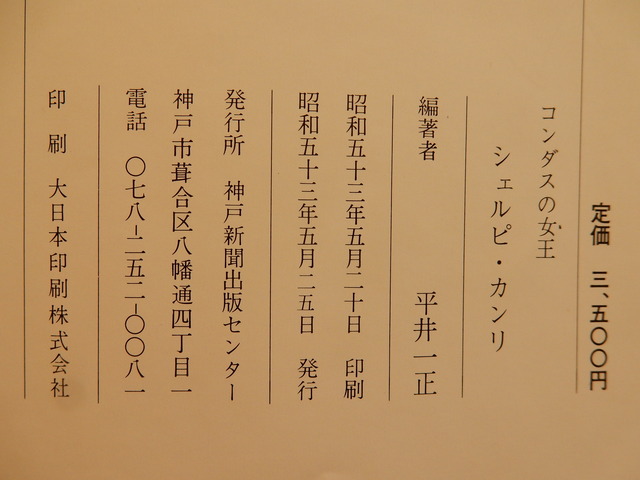 定価　三、五〇〇円
コンダスの女王
シェルピ・カンリ
編著者　平井一正
昭和五十三年五月二十日　印刷
昭和五十三年五月二五日　発行
発行所　神戸新聞出版センター
神戸市葺合区八幡通四丁目一
電話　〇七八-二五二-〇〇八一
印刷　大日本印刷株式会社